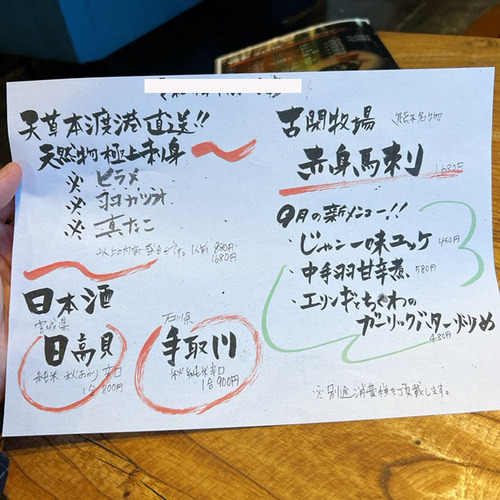 天草本渡港直送!!
天然物極上刺身
※ ヒラメ
※ ヨコカツオ
※ 真たこ
以上の内容 盛合せです。1人前 880円
1680円
日本酒
宮城県
日高見
純米 秋あがり 辛口
1合 800円
石川県
手取川
秋 純米辛口
1合 900円
古閑牧場
熊本名物
赤身馬刺り
1680円
9月の新メニュー!!
・じゃん一味ユッケ 450円
・中手羽甘辛煮 580円
・エリンギとちくわの
ガーリックバター炒め
480円
※別途消費税を頂戴します。